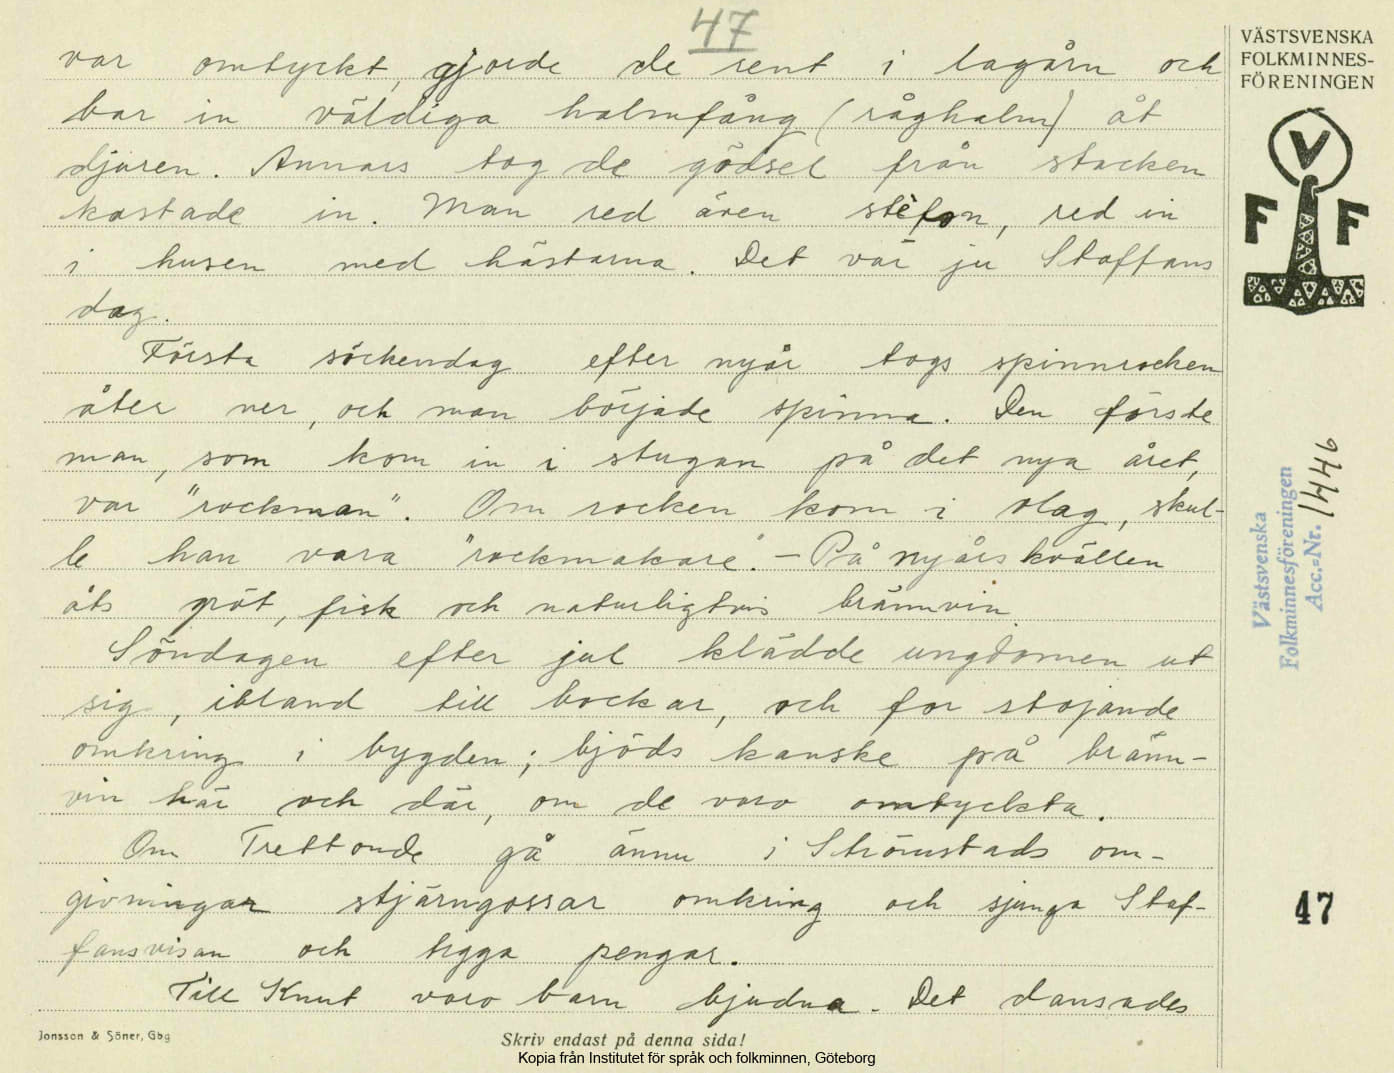 47
var omtyckt, gjorde de rent i lagårn och
bar in väldiga halmfång (råghalm) åt
djuren. Annars tog de gödsel från stacken
kastade in. Man red även stefan, red in
i husen med hästarna. Det var ju Staffans
dag.
Första söckendag efter nyår togs spinnrocken
åter ner, och man började spinna. Den förste
man, som kom in i stugan på det nya året,
var "rockman". Om rocken kom i olag, skul-
le han vara "rockmakare". - På nyårskvällen
åts gröt, fisk och naturligtvis brännvin
Söndagen efter jul klädde ungdomen ut
sig, ibland till bockar, och for stojande
omkring i bygden; bjöds kanske på bränn-
vin här och där, om de voro omtyckta.
Om Trettonde gå ännu i Strömstads om-
givningar stjärngossar omkring och sjunga Staf-
fansvisan och tigga pengar.
Till Knut voro barn bjudna. Det dansades
Jonsson & Söner, Gbg
Skriv endast på denna sida!
Kopia från Institutet för språk och folkminnen, Göteborg
VÄSTSVENSKA
FOLKMINNES-
FÖRENINGEN
V
F F
Västsvenska
Folkminnesföreningen
Acc.=Nr. 1446
47